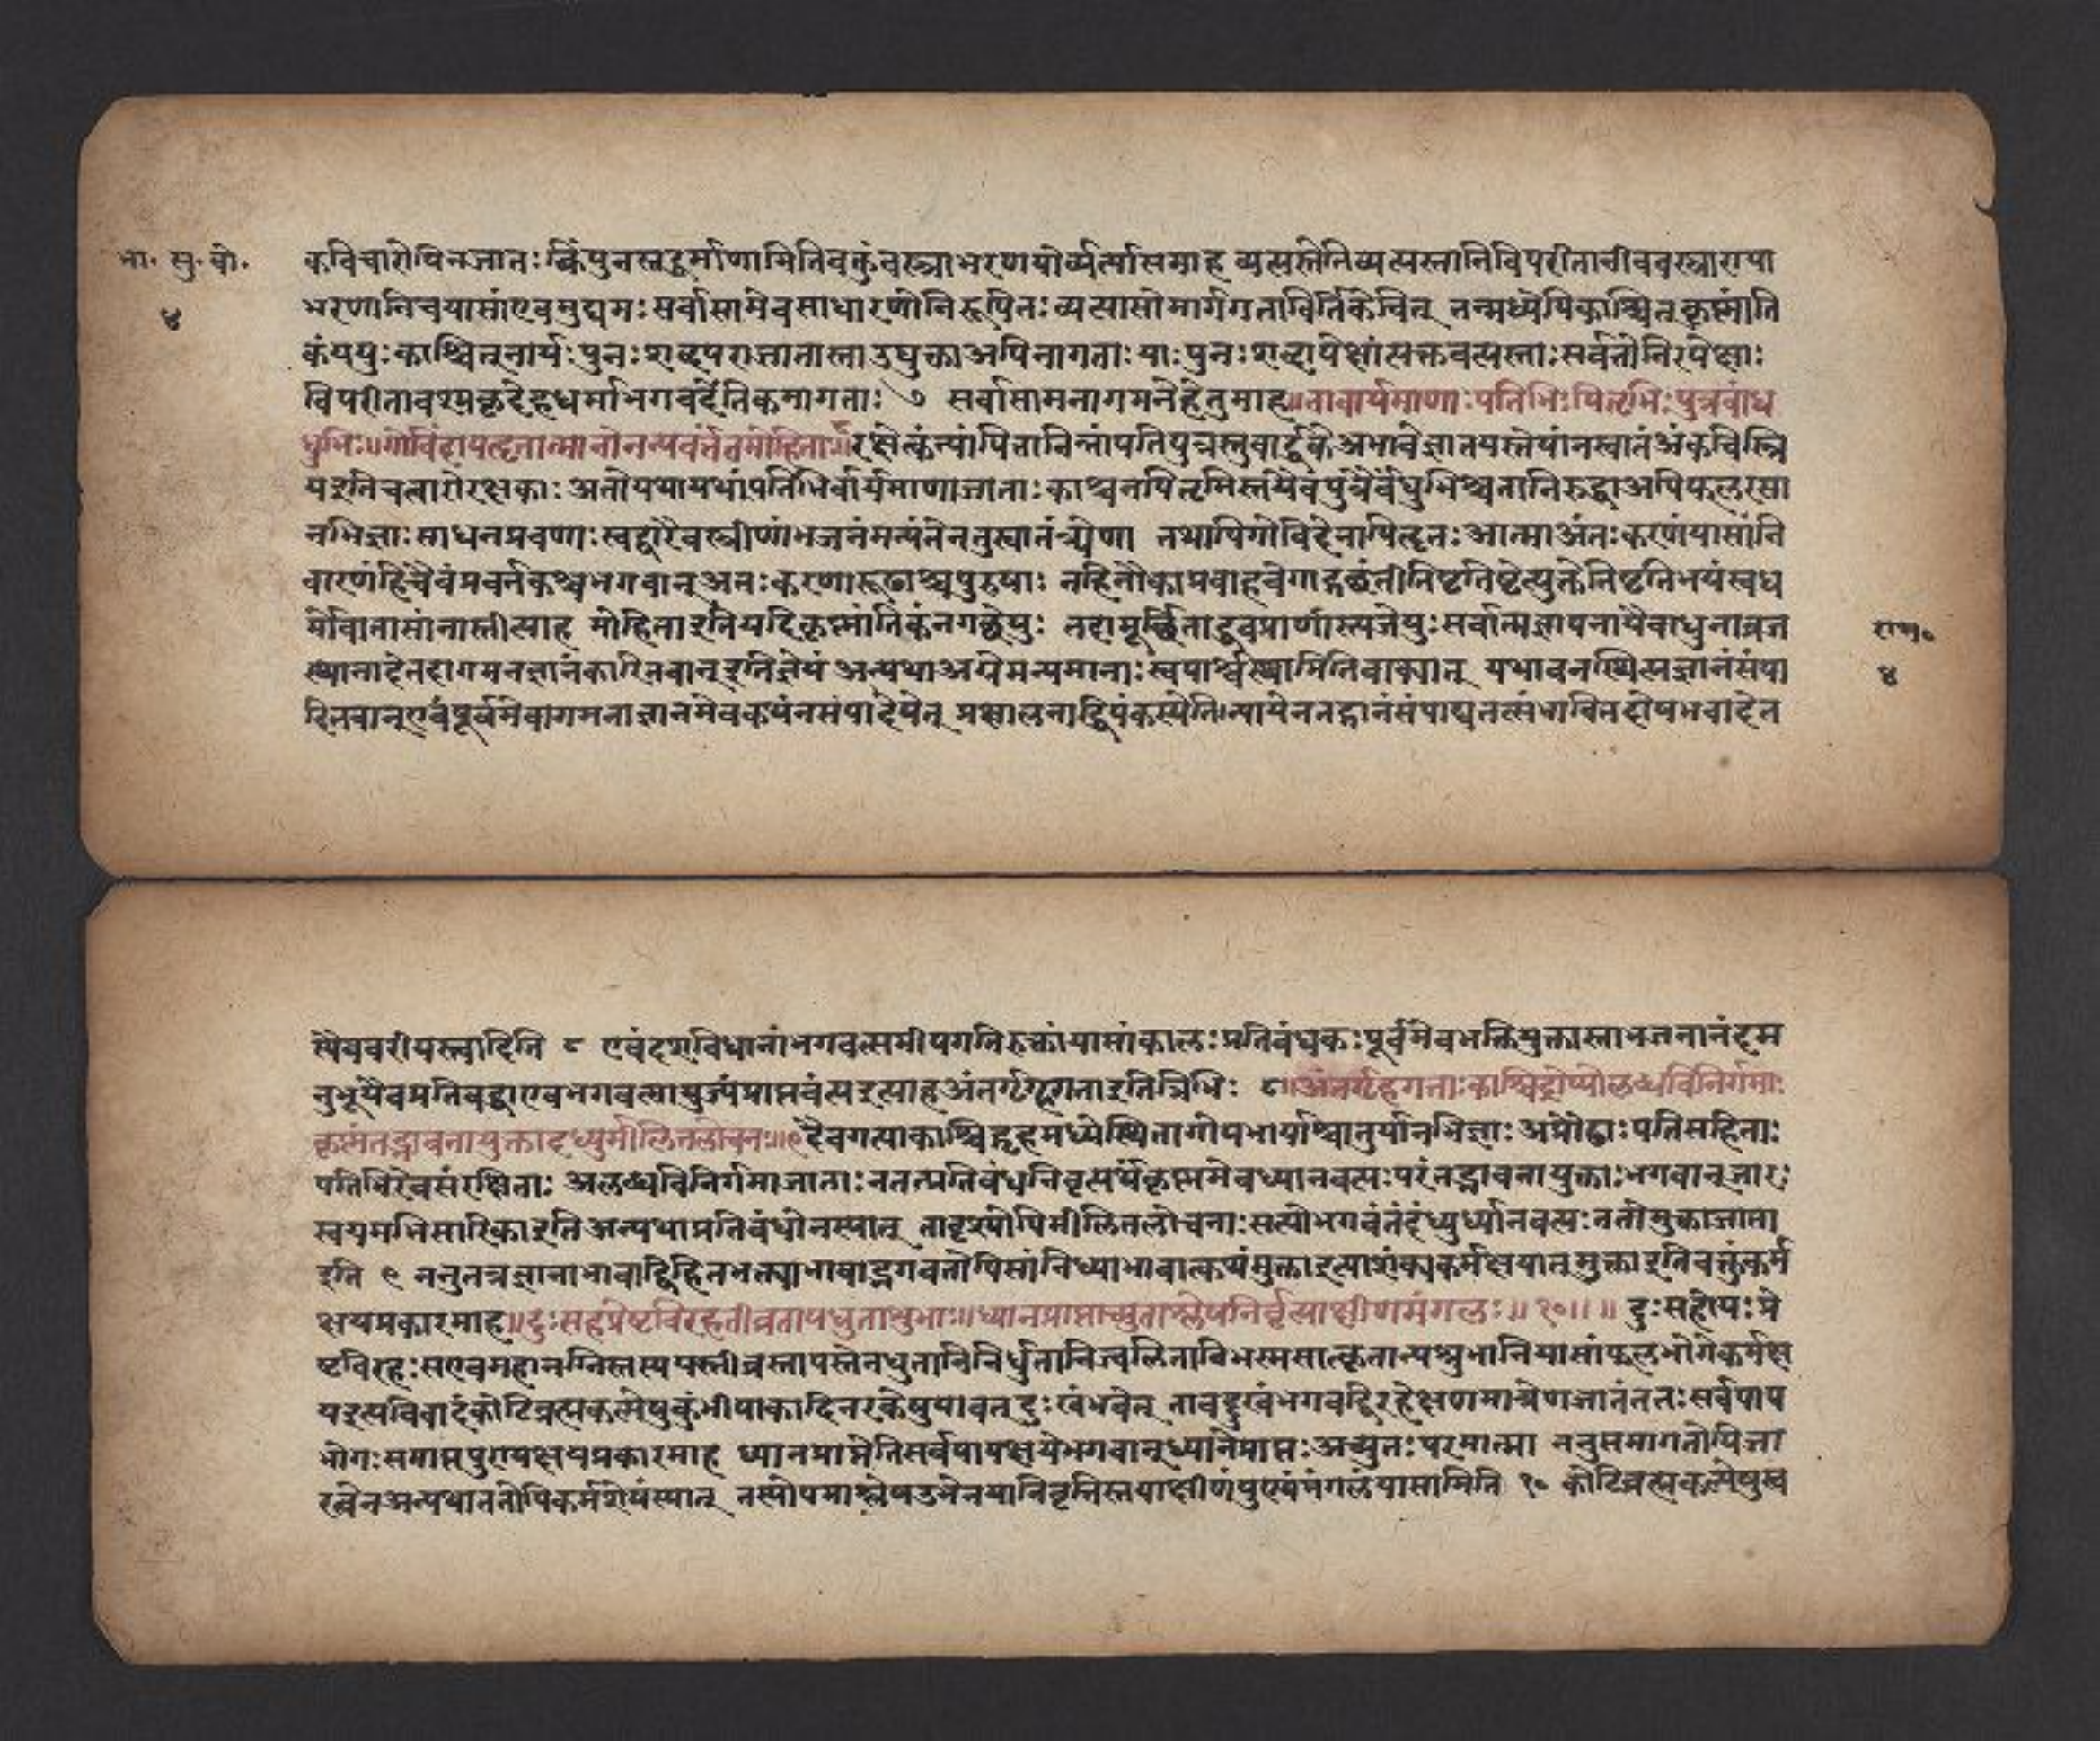 भा. सु. बो.
४
कविचारोपिनजातः किंपुनस्तद्धर्माणामितिवक्तुंवस्त्राभरणयोर्व्यत्यासमाह व्यत्यस्तेतिव्यत्यस्तानिविपरीतानीववस्त्राण्या
भरणानिचयासांएवमुद्यमः सर्वासामेवसाधारणोनिरूपितः व्यत्यासोमार्गगतावितिकेचित् तन्मध्येपिकाश्चित्कृष्णांति
कंययुः काश्चित्नार्यः पुनः शब्दपराजातास्ताउद्युक्ताअपिनागताः याः पुनः शब्दापेक्षांत्यक्तवत्यस्ताः सर्वतोनिरपेक्षाः
विपरीतावश्यकदेहधर्माभगवदंतिकमागताः ७ सर्वासामनागमनेहेतुमाह॥तावार्यमाणाः पतिभिः पितृभिः पुत्रबांध
धुभिः॥गोविंदापहृतात्मानोनन्यवर्त्ततमोहिताः॥८रक्षेत्कंन्यांपिताविन्नांपतिपुत्रस्तुवार्द्धके अभावेज्ञातयस्तेषांनस्वातंत्र्यंक्वचित्स्त्रि
यइतिचत्वारोरक्षकाः अतोयथायथांपतिभिर्वार्यमाणाजाताः काश्चनपितृमिस्तथैवपुत्रैर्बंधुभिश्चतानिरुद्धाअपिफलरसा
नभिज्ञाः साधनप्रवणाः स्वद्वारैवस्त्रीणांभजनंमन्यंतेनतुस्वातंत्र्येण तथापिगोविंदेनापहृतः आत्माअंतः करणंयासांनि
वारणंहिचैवंप्रवर्तकश्चभगवान्अतः करणारूढाश्चपुरुषाः नहिनौकाप्रवाहवेगाद्गच्छंतीतिष्टतिष्टेत्युक्तेतिष्टतिभयंस्वध
र्मोवातासांनास्तीत्याह मोहिताइतियदिकृष्णांतिकंनगच्छेयुः तदामूर्च्छिताद्धुवप्राणांस्त्यजेयुः सर्वात्मज्ञापनायैवाधुनाव्रज
स्थानादेतदागमनज्ञानंकारितवान्इतिज्ञेयं अन्यथाअग्रेमन्यमानाः स्वपार्श्वस्थामितिवाक्यात् यथावनस्थित्यज्ञानंसंपा
दितवान्एवंपूर्वमेवागमनाज्ञानमेवकथंनसंपादेयेत् प्रक्षालनाद्धिपंकस्येतिन्यायेनतद्ज्ञानंसंपाद्यतत्संभावितदोषभवादेत
राम०
४
स्यैववरीयस्त्वादिति ८ एवंदशविधानांभगवत्समीपगतिरुक्तांयासांकालः प्रतिबंधकः पूर्वमेवभक्तियुक्तास्ताभजनानंदम
नुभूयैवप्रतिबद्धाएवभगवत्सायुज्यंप्राप्तवंत्यइत्याहअंतर्गृहगताइतित्रिभिः ८॥अंतर्गृहगताः काश्चिद्गोप्योलब्धविनिर्गमाः
कृष्णंतद्भावनायुक्तादध्युर्मीलितलोचनाः॥९दैवगत्याकाश्चिद्गृहमध्येस्थितागोपभार्याश्चातुर्यानभिज्ञाः अप्रौढाः पतिसहिताः
पतिभिरेवसंरक्षिताः अलब्धविनिर्गमाजाताः ततत्प्रतिबंधनिवृत्यर्थंकृष्णमेवध्यानवत्यः परंतद्भावनायुक्ताः भगवान्जारः
स्वयमभिसारिकाइतिअन्यथाप्रतिबंधोनस्यात् तादृश्योपिमीलितलोचनाः सत्योभगवंतंदध्युर्ध्यानवत्यः ततोमुक्ताजाता
इति ९ ननुतत्रज्ञानाभावाद्विहितभक्त्याभावाद्भगवतोपिसांनिध्याभावात्कथंमुक्ताइत्याशंक्यकर्मक्षयात्मुक्ताइतिवक्तुंकर्म
क्षयप्रकारमाह॥दुः सहप्रेष्टविरहतीव्रतापधुताशुभाः॥ध्यानप्राप्ताच्युताश्लेषनिर्वृत्याक्षीणमंगलाः॥ १०॥ ॥ दुः सहोयः प्रे
ष्टविरहः सएवमहानग्निस्तस्ययस्तीव्रस्तापस्तेनधुतानिनिर्धुतानिज्वलितानिभस्मसात्कृतान्यशुभानियासांफलभोगेकर्मक्ष
यइत्यविवादंकोटिब्रह्मकल्पेषुकुंभीपाकादिनरकेषुयावत्दुः खंभवेत् तावद्दुखंभगवद्विरहेक्षणमात्रेणजातंततः सर्वपाप
भोगः समाप्तपुण्यक्षयप्रकारमाह ध्यानप्राप्तेतिसर्वपापक्षयेभगवान्ध्यानेप्राप्तः अच्युतः परमात्मा ननुसमागतोपिजा
रत्वेनअन्यथाततोपिकर्मशेषंस्यात् तस्योपमाश्लेषउमेनयानिवृत्तिस्तयाक्षीणंपुण्यंमंगलंयासामिति १० कोटिब्रह्मकल्पेषुस्व